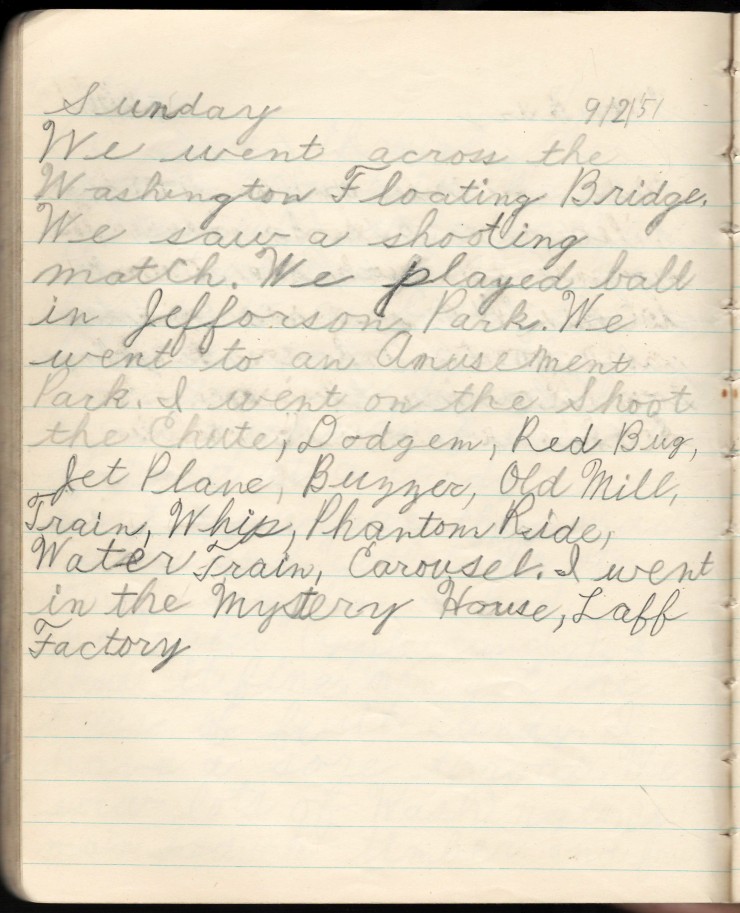 Sunday 9/2/51
We went across the
Washington Floating Bridge.
We saw a shooting
match. We played ball
in Jefforson Park. We
went to an Amusement
Park. I went on the Shoot
the Chute, Dodgem, Red Bug,
Jet Plane, Buzzer, Old Mill,
Train, Whip, Phantom Ride,
Water Train, Carousel. I went
in the Mystery House, Laff
Factory